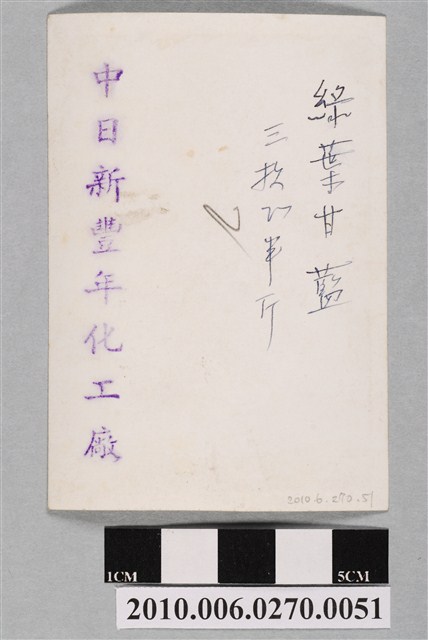 綠葉甘藍
三拾2半斤
中日新豐年化工廠
2010.6.270.51
1CM
5CM
2010.006.0270.0051